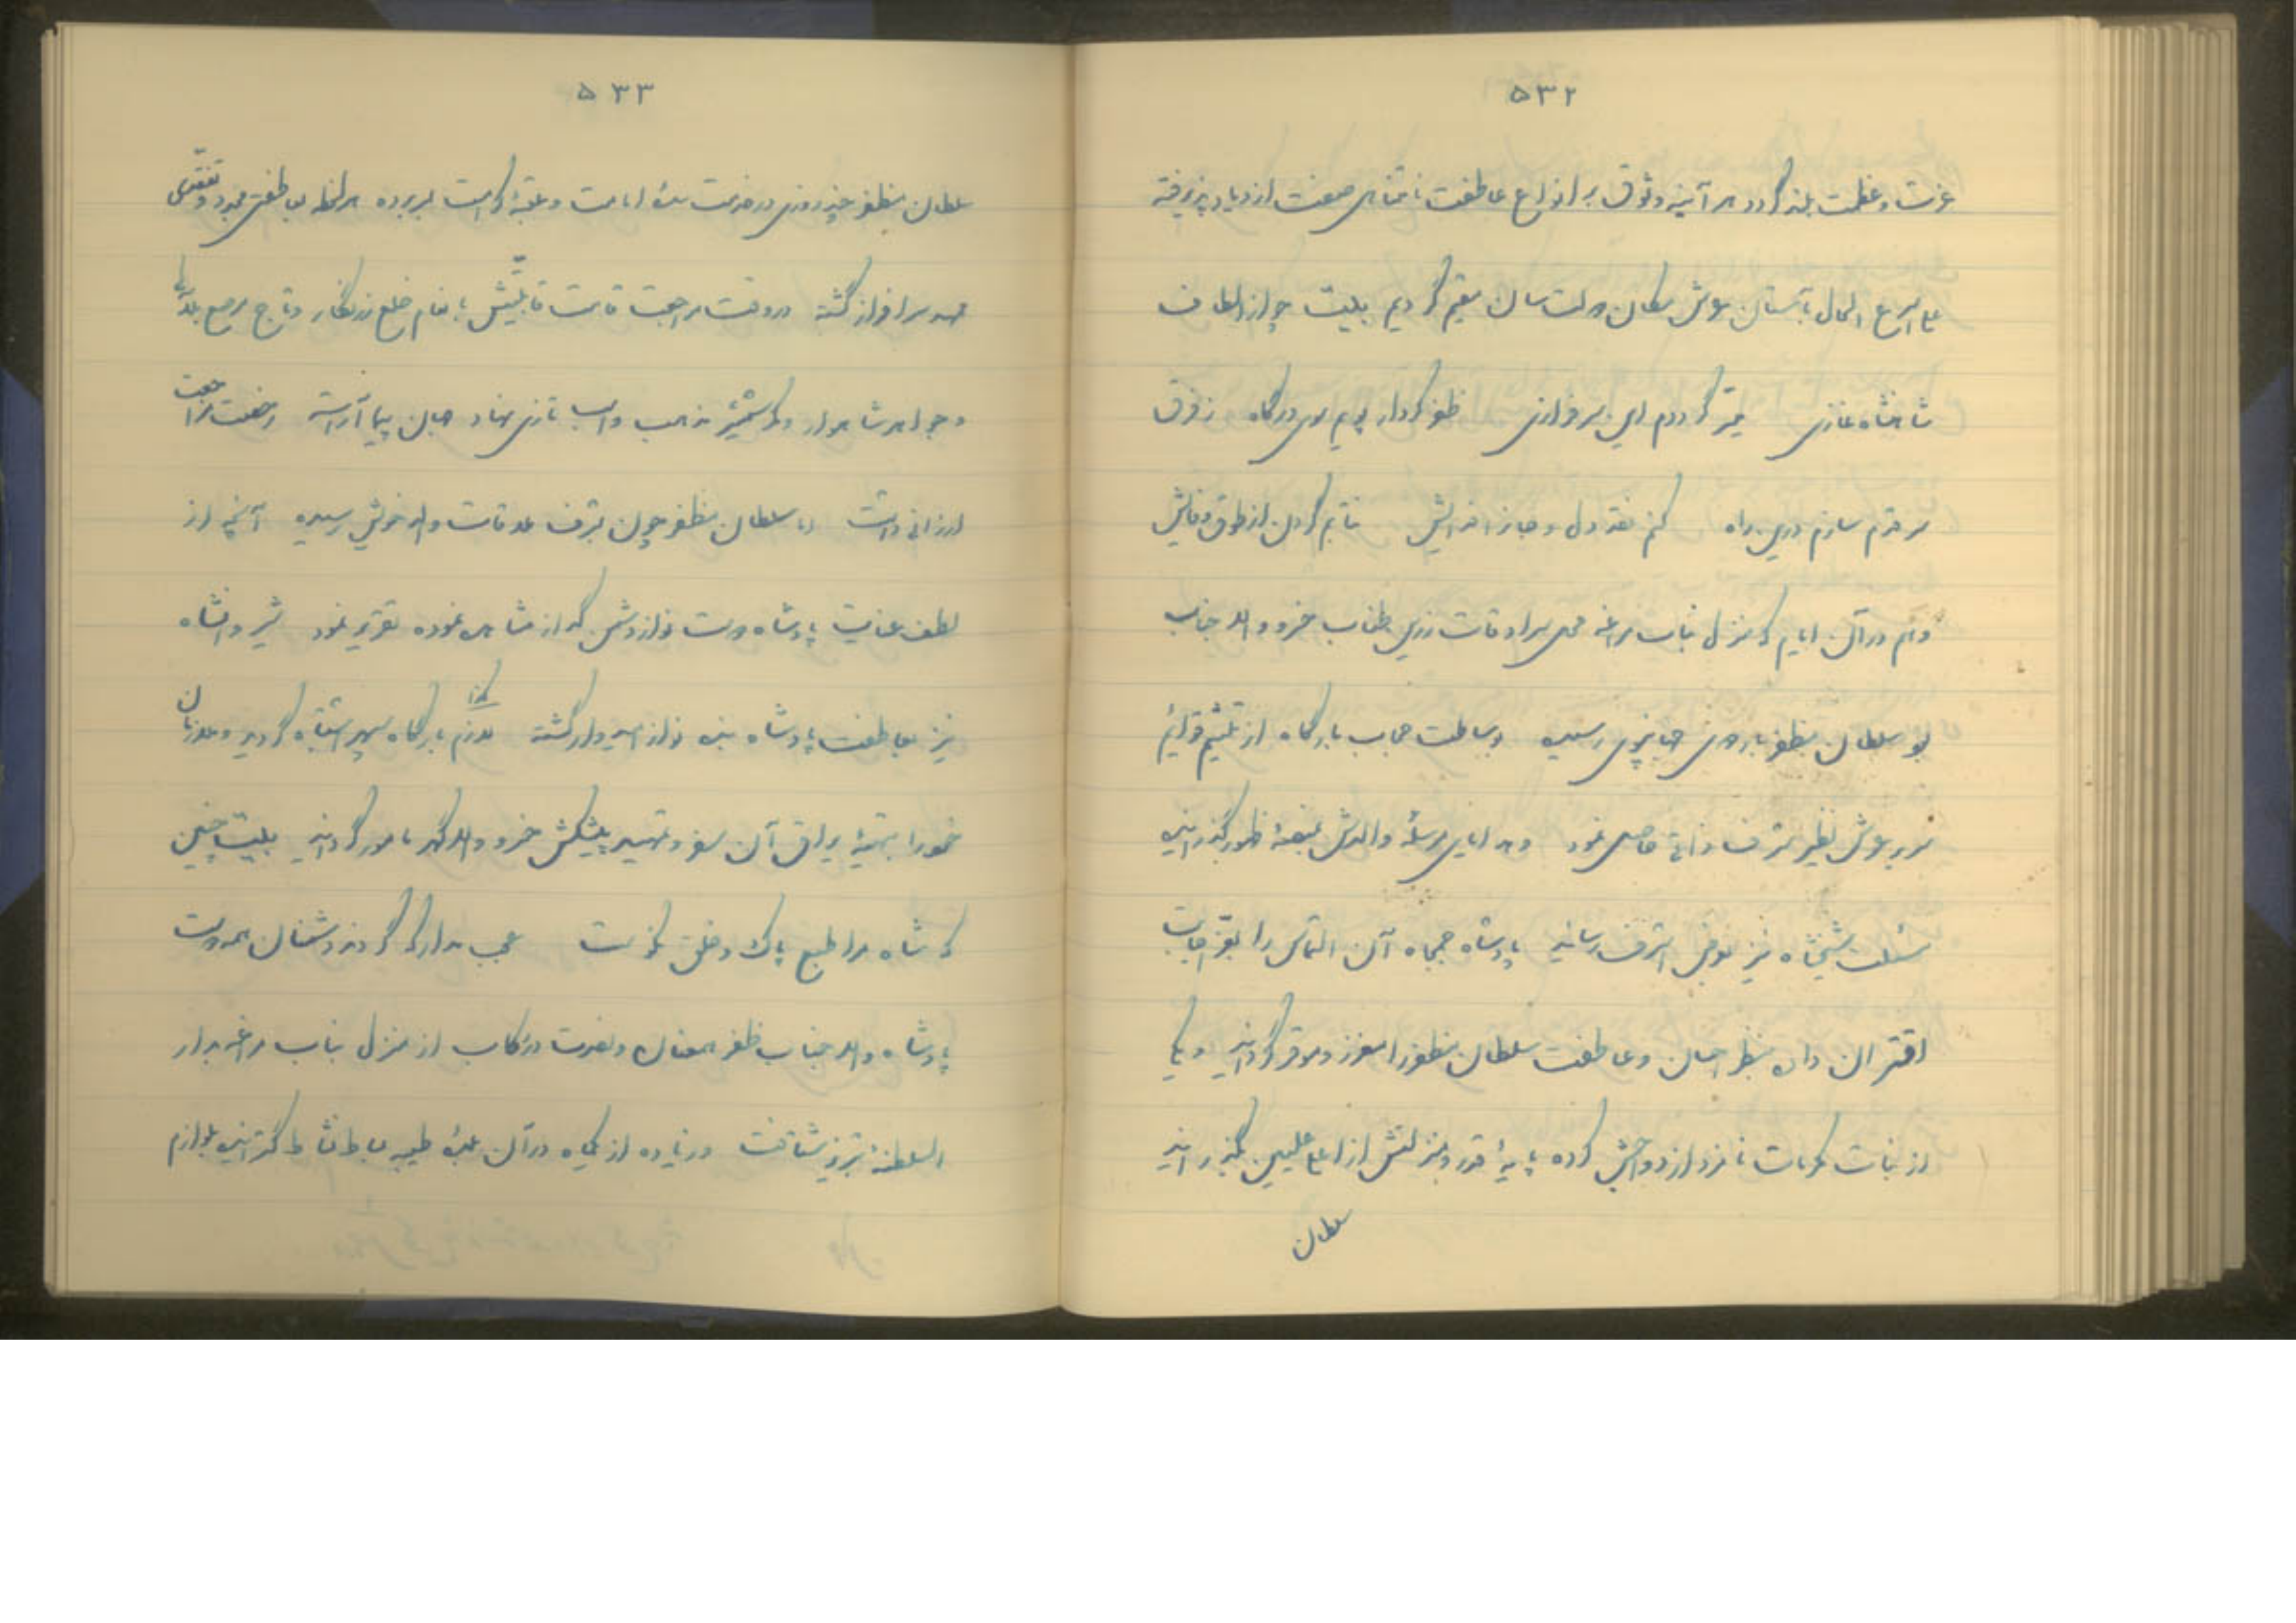 ۵۳۲
عزت و عظمت بلند گردد هر آینه وثوق بر انواع عاطفت نامتناهی صفت ازدیاد پذیرفته
علی اسرع الحال بآستان عرش مکان دولت سان مقیم گردیم بیت چو از الطاف
شاهنشاه غازی میسر گرددم این سرفرازی ظفر کردار پویم سوی درگاه ز فرق
سر قدم سازم درین راه کنم نقد دل و جانرا فدایش نتابم گردن از طوق وفایش
و هم در آن ایام که منزل بناب مراغه سرادقات زرین طناب خسرو والا جناب
بو سلطان مظفر باردوی همایون رسیده وساطت حجاب بارگاه از تلثیم قوائم
سریر عرش نظیر شرف ذاتی حاصل نمود و هدایای مرسلهٔ والدش بمنصهٔ ظهور گذرانیده
مسئلت شیخشاه نیز بعرض اشرف رسانید پادشاه جمجاه آن التماس را بعز اجابت
اقتران داده بنظر احسان و عاطفت سلطان مظفر را معزز و موقر گردانید و یکی
از بنات مکرمات نامزد ازدواجش کرده پایهٔ قدر و منزلتش از اعلی علیین بگذرانید
سلطان
۵۳۳
سلطان مظفر چند روزی در خدمت سدهٔ امامت و عتبهٔ کرامت بسر برده هر لحظه بعاطفتی مجدد و تفقدی
ممهد سرافراز گشته در وقت مراجعت قامت قابلیتش بانعام خلع زرنگار و تاج مرصع بلآلی
و جواهر شاهوار و کمر شمشیر مذهب و اسب تازی نهاد جهان پیما آراسته رخصت مراجعت
ارزانی داشت اما سلطان مظفر چون بشرف ملاقات والد خویش رسیده آنچه از
لطف عنایت پادشاه دوست نواز دشمن گداز مشاهده نموده تقریر نمود شیروانشاه
نیز بعاطفت پادشاه بنده نواز امیدوار گشته ملازم بارگاه سپهر اشتباه گردید و ملازمان
کذا
خود را بتهیهٔ یراق آن سفر و تهیه پیشکش خسرو والا گهر مامور گردانید بیت چنین
که شاه مرا طبع پاک و خلق نکوست عجب مدار که گردند دشمنان همه دوست
پادشاه والا جناب ظفر همعنان و نصرت در رکاب از منزل بناب مراغه بدار
السلطنهٔ تبریز شتافت و زیاده از یکماه در آن بلدهٔ طیبه بساط نشاط گسترانیده بلوازم